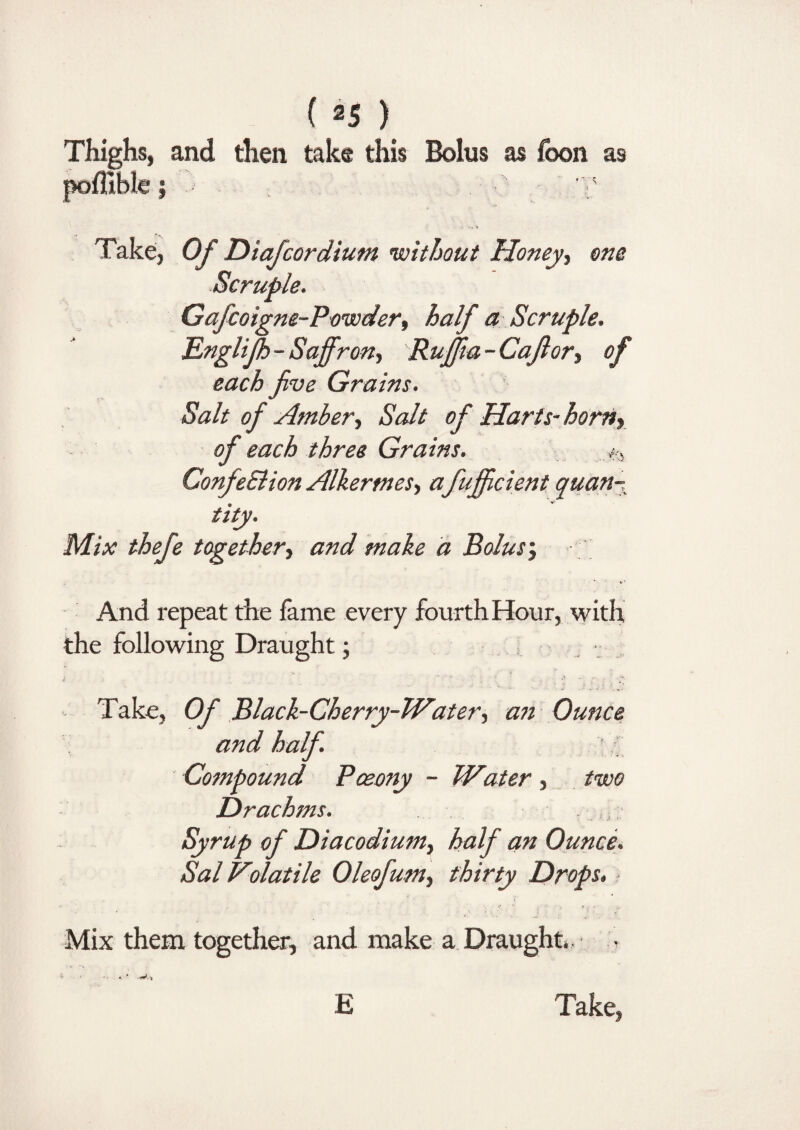 ( 25 )
Thighs, and then take this Bolus as ſoon as
poſſible ;
Take, Of Diaſcordium without Honey, one
Scruple.
Gaſcoigne-Powder, half a Scruple.
Engliſh - Saffron, Ruſſia - Caſtor, of
each five Grains.
Salt of Amber, Salt of Harts-horn,
of each three Grains.
Confection Alkermes, a ſufficient quan-
tity.
Mix theſe together, and make a Bolus;
And repeat the ſame every fourth Hour, with
the following Draught ;
Take, Of Black-Cherry-Water, an Ounce
and half.
Compound Pœony - Water, two
Drachms.
Syrup of Diacodium, half an Ounce.
Sal Volatile Oleoſum, thirty Drops.
Mix them together, and make a Draught.
E Take,